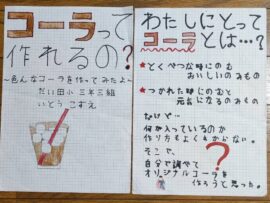 コーラって
作れるの?
~色んなコーラを作ってみたよ~
だい田小 三年三組
いとう こずえ
わたしにとって
コーラとは…?
★とくべつな時にのむ
おいしいのみもの
★つかれた時にのむと
元気になるのみもの
だけど…
何が入っているのか
作り方もよくわからない。
そこで、
自分で調べて
オリジナルコーラを
作ろうと思った。
?